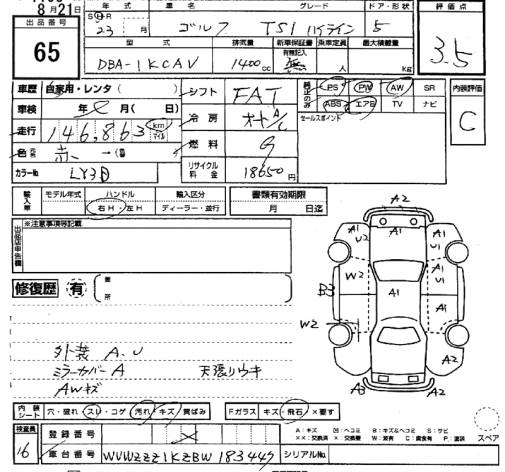 8月21日
年式 車名 グレード ドア・形状 評価点
出品番号
SHR
23 月 ゴルフ TSI ハイライン 5
65
型式 排気量 新車保証書 乗車定員 最大積載量
有無記入
DBA-1KCAV 1400cc 無 人 kg
3.5
車歴 自家用・レンタ( ) シフト FAT
PS PW AW SR
ABS エアB TV ナビ
内装評価
C
車検 年 月( 日) 冷房 オートA/C
セールスポイント
走行 146,863 km マイル
燃料 G
色 赤 →(
カラーNo. LY3D リサイクル料金 18600円
輸入車 モデル年式 ハンドル 輸入区分 書類有効期限
右H・左H ディーラー・並行 月 日迄
出品店申告欄 ※注意事項等記載
修復歴 有 箇所
外装 A.U
ミラーカバーA 天張りウキ
AWキズ
A2
A1 A1 A1
U2 U1
W2 A1 W2
U1
B3 A1 A1
W2
A2
A3 A2
内装シート 穴・破れ スレ・コゲ 汚れ キズ 黄ばみ Fガラス キズ 飛石 ×要す
検査員
16
登録番号
車台番号 WVWZZZ1KZBW183449 シリアルNo.
A:キズ U:ヘコミ B:キズ&ヘコミ S:サビ
XX:交換済 X:交換要 W:波有 C:腐食有 P:塗装
スペア